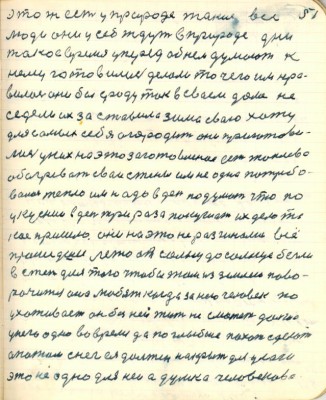 это ж есть у природе такие все 51
люди они у себ ждут в природе дни
такова время уперед об нем думают к
нему готовился делали то чего им нра-
вился они бы сроду так в своем доме не
седели их заставила зима сваго хату
для самых себя огородит они приготови-
лися у них на это заготовленое есть топливо
обогреват сваи стены им не одно потребо-
валося тепло им надо в ден подумат что по
укусней в ден три раза покушат их дело та
кое пришло. они на это не разгинали всё
прошедшее лето от солнца до солнца бегли
в степ для того чтобы этой из землею пово-
рочится она любят когда за нею человек по
ухаживает он бы ней жит не сможет должно
у него одно во время да поглыбше пахот сделат
а потом снег ся должен накрыт для влаги
это не одно для ней а думка человекова.